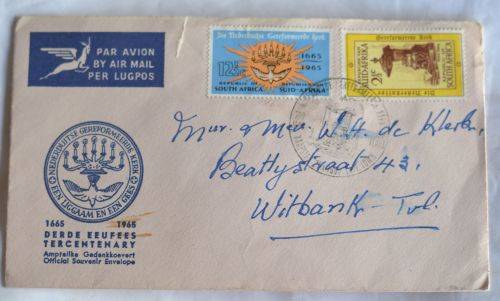 PAR AVION
BY AIR MAIL
PER LUGPOS
Die Nederduitse Gereformeerde Kerk
1665
1965
12½c
REPUBLIC OF SOUTH AFRICA
REPUBLIEK VAN SUID-AFRIKA
Gereformeerde Kerk
2½c
SOUTH AFRICA
Mnr. & Mev. W. H. de Klerk,
Beattystraat 43,
Witbank - Tvl.
NEDERDUITSE GEREFORMEERDE KERK
EEN LIGGAAM EN EEN GEES
1665 1965
DERDE EEUFEES
TERCENTENARY
Amptelike Gedenkkoevert
Official Souvenir Envelope